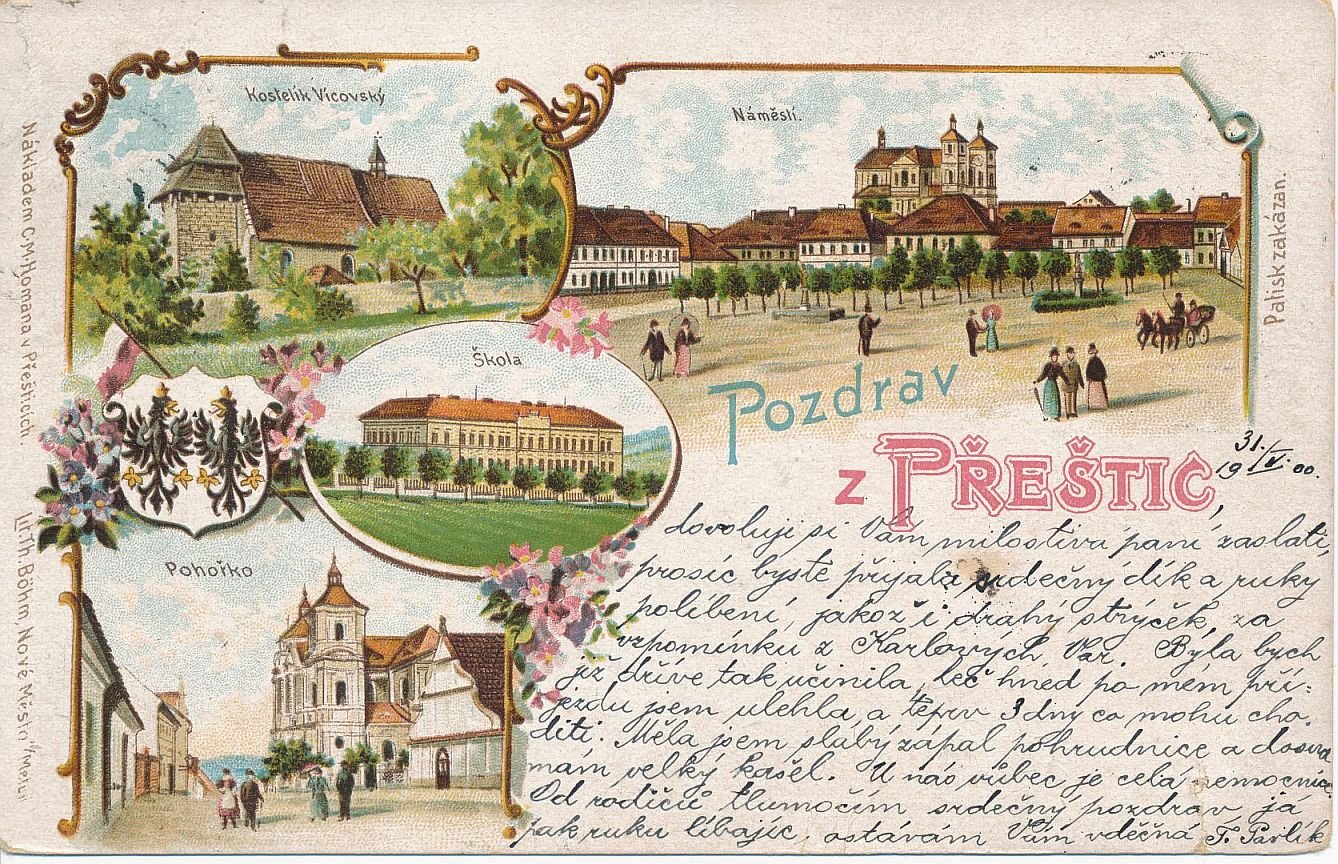 Kostelík Vícovský
Náměstí.
Nákladem C. M. Homana v Přešticích.
Patisk zakázán.
Škola
Pozdrav
z PŘEŠTIC
31./V. 1900.
Pohořko
Lit. Th. Böhm, Nové Město n/Metují
dovoluji si Vám milostivá paní zaslati,
prosíc byste přijala srdečný dík a ruky
políbení, jakož i drahý strýček, za
vzpomínku z Karlových Var. Byla bych
již dříve tak učinila, leč hned po mém pří-
jezdu jsem ulehla, a teprv 3 dny co mohu cho-
diti. Měla jsem slabý zápal pohrudnice a dosud
mám velký kašel. U nás vůbec je celá nemocnice.
Od rodičů tlumočím srdečný pozdrav, já
pak ruku líbajíc, ostávám Vám vděčná F. Pavlík